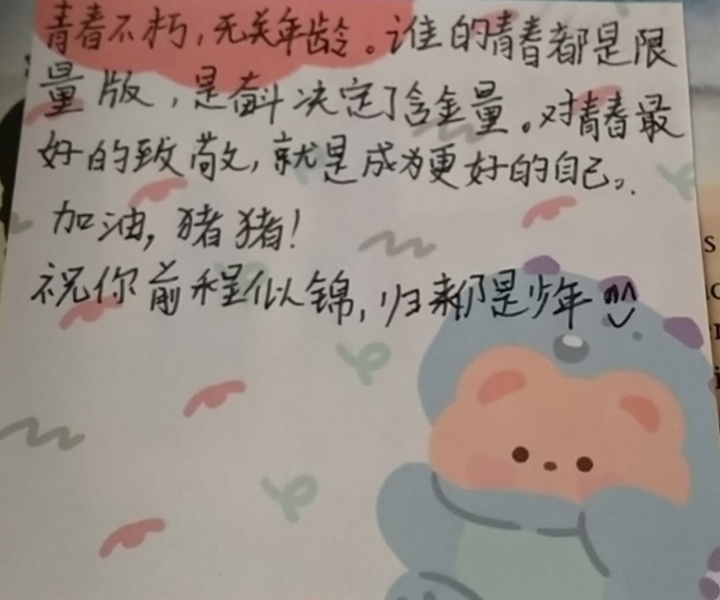 青春不朽，无关年龄。谁的青春都是限
量版，是奋斗决定了含金量。对青春最
好的致敬，就是成为更好的自己。
加油，猪猪！
祝你前程似锦，归来都是少年
s